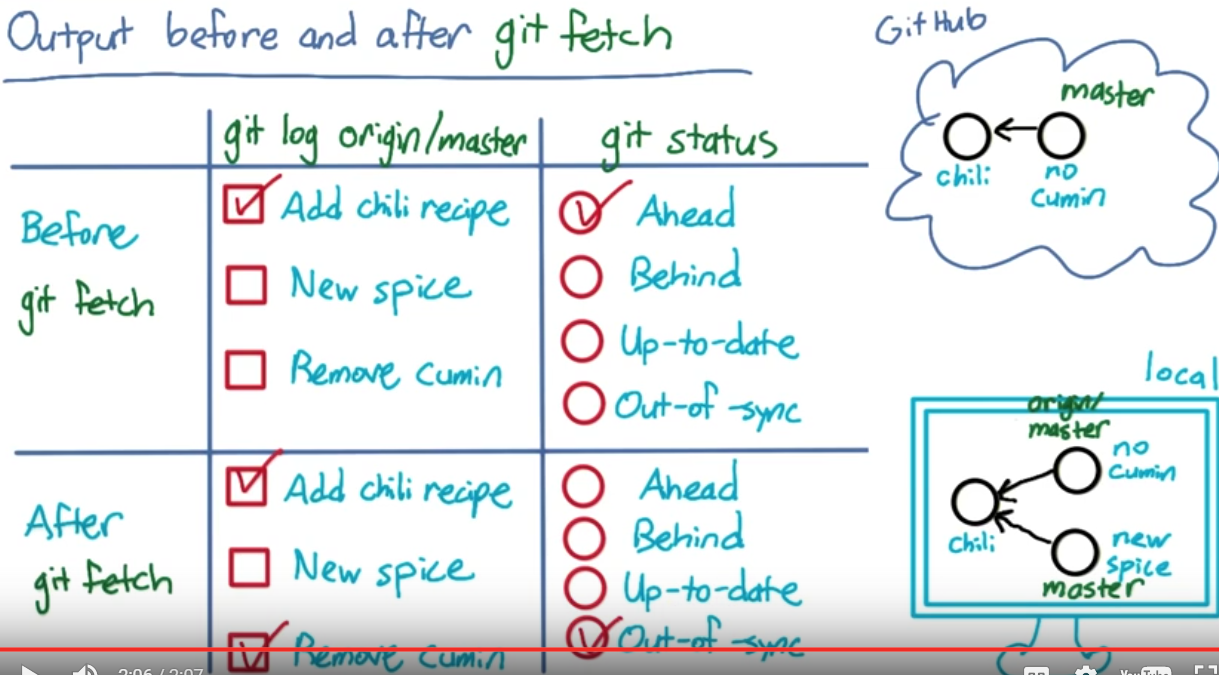 Output before and after git fetch
GitHub
master
chili
no
cumin
git log origin/master
git status
Before
git fetch
Add chili recipe
New spice
Remove cumin
Ahead
Behind
Up-to-date
Out-of-sync
After
git fetch
Add chili recipe
New spice
Remove cumin
Ahead
Behind
Up-to-date
Out-of-sync
local
origin/
master
no
cumin
chili
new
spice
master
2:06 / 2:07
YouTube